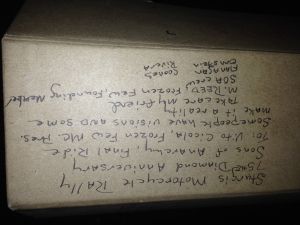 Sturgis Motorcycle Rally
75th Diamond Anniversary
Sons of Anarchy, Final Ride
To: Vito Cicola, Frozen Few MC. Pres.
Some people have visions and some
make it a reality
Take care my friend
M. REED Frozen Few, Founding Member
SOA crew
FLANAGAN COONES
RIVERA